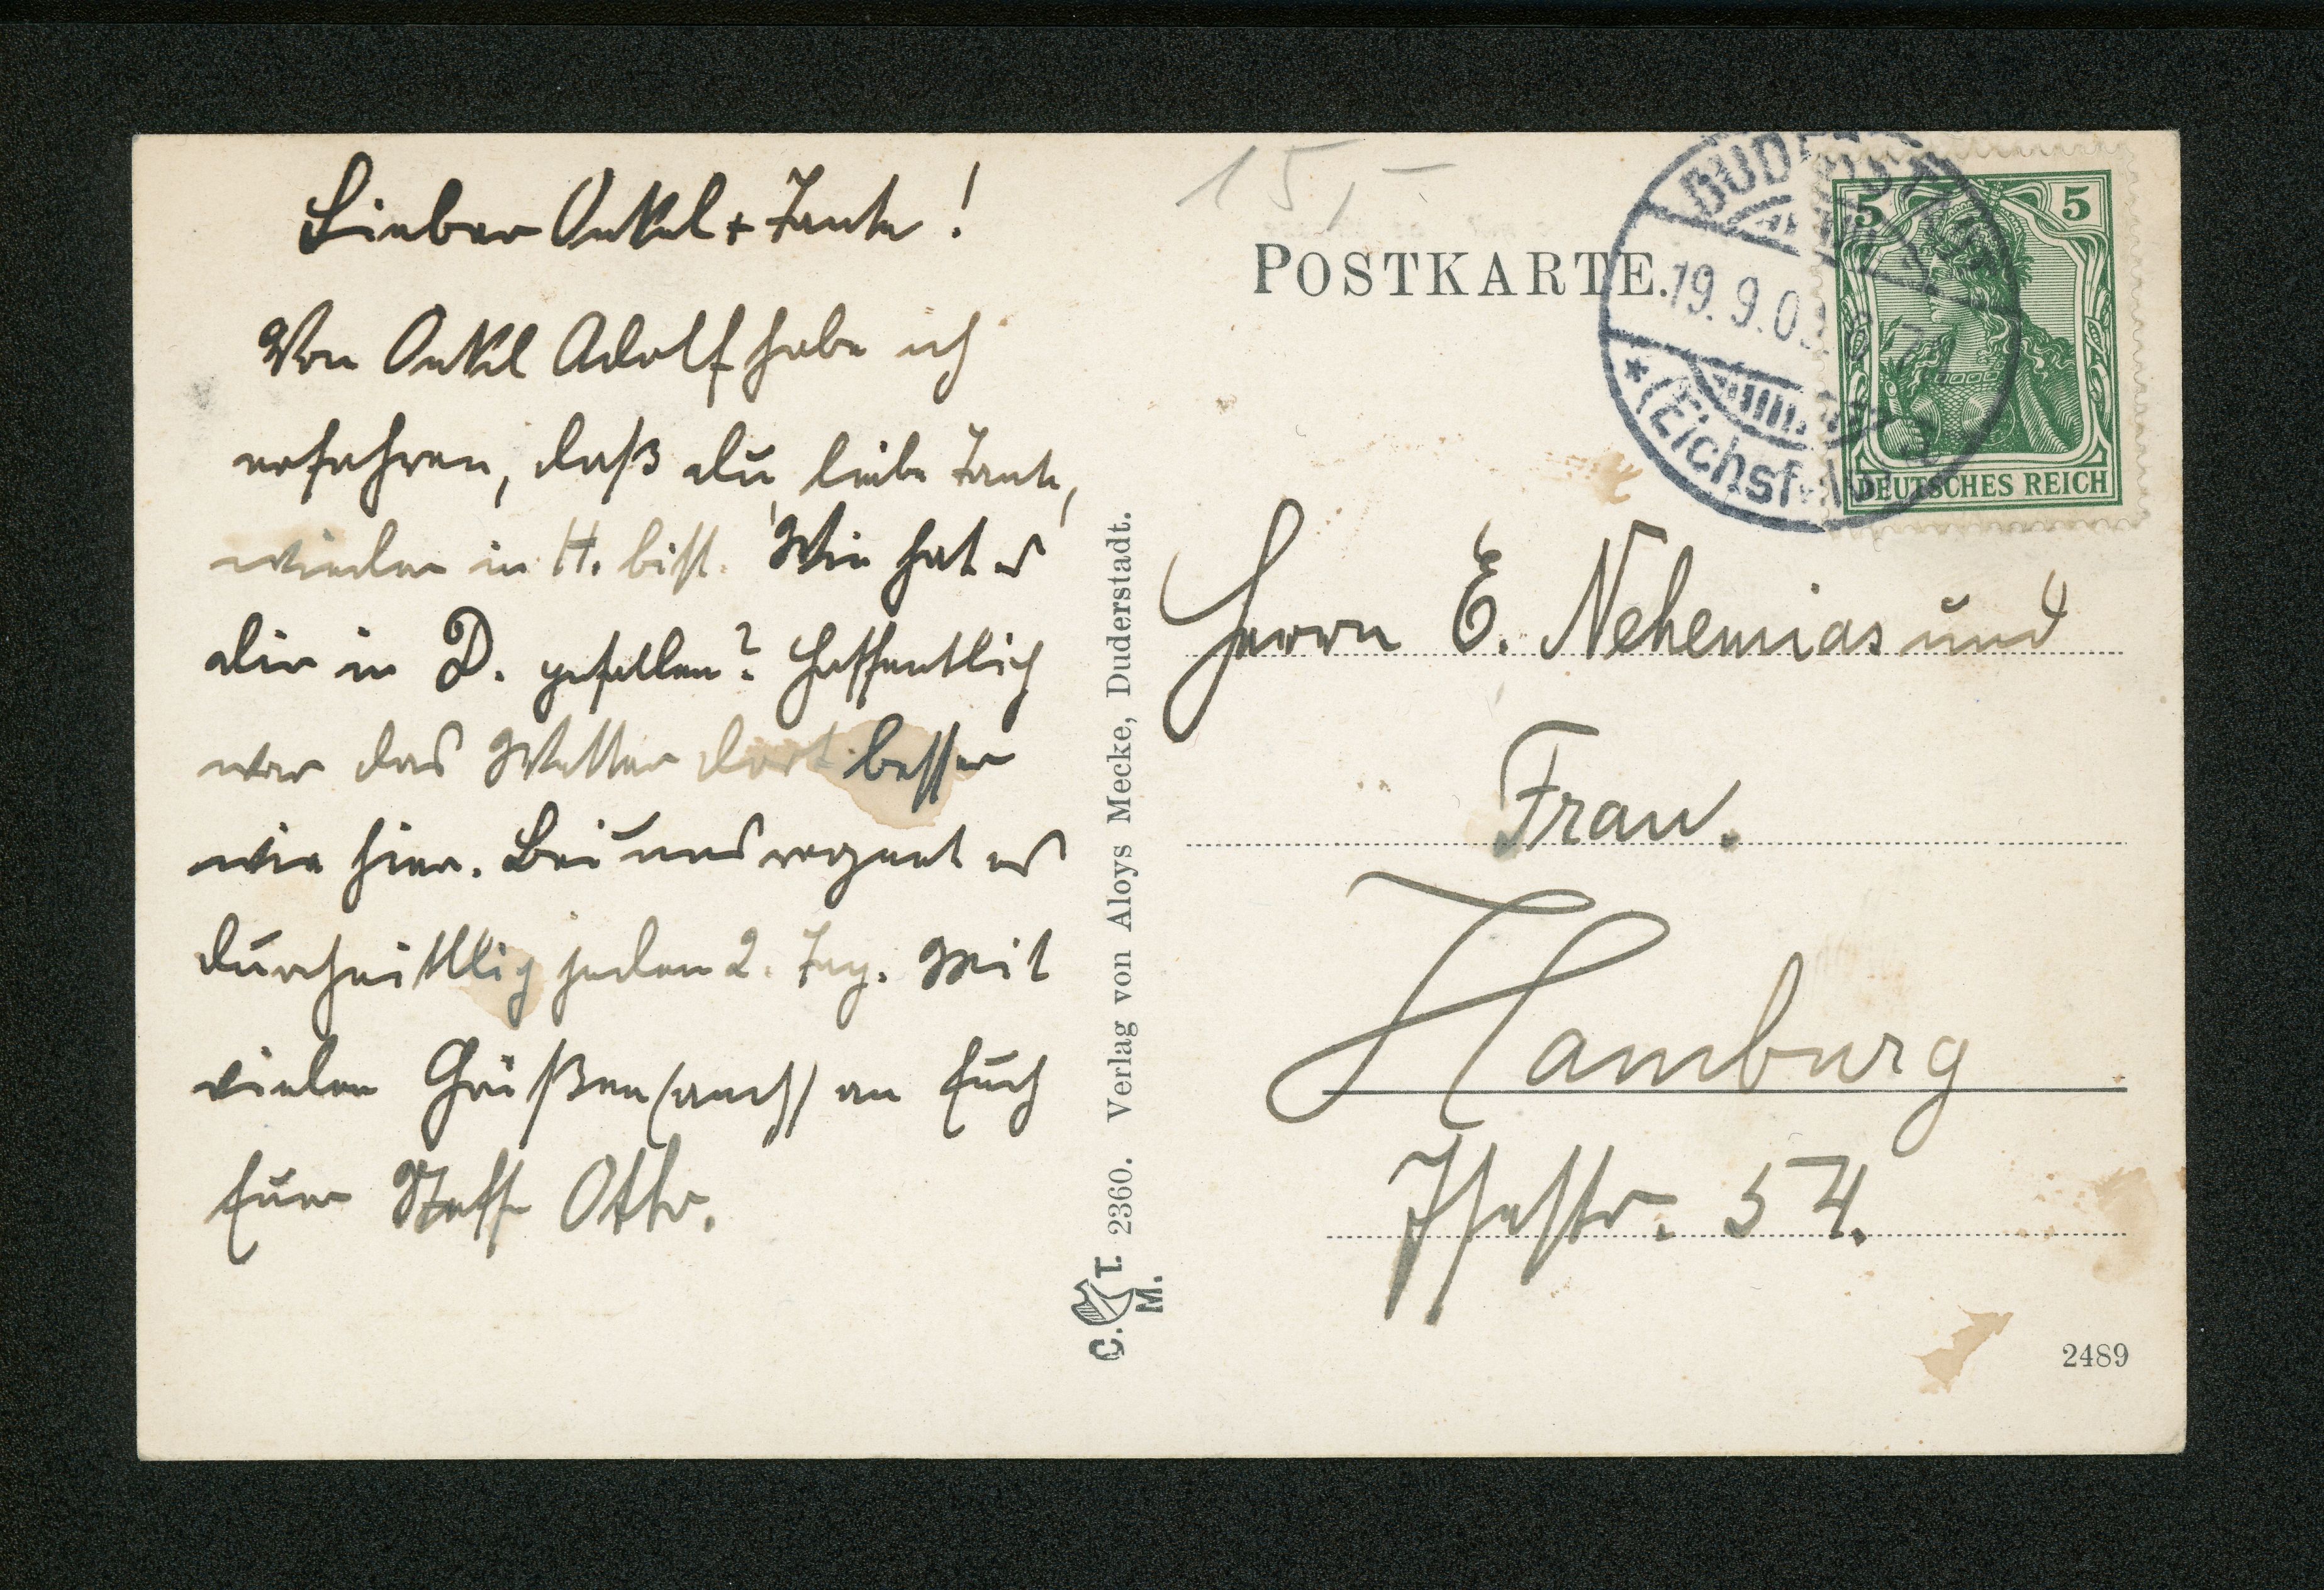 Lieber Onkel + Tante!
Von Onkel Adolf habe ich
erfahren, daß du, liebe Tante,
wieder in H. bist. Wie hat es
dir in D. gefallen? Hoffentlich
war das Wetter dort besser
wie hier. Bei uns regnet es
durchnittlig jeden 2. Tag. Mit
vielen Grüßen (auch) an Euch
Euer Neffe Otto.
15,-
POSTKARTE.
19.9.0
(Eichsfeld)
5 5
DEUTSCHES REICH
Herrn E. Nehemias und
Frau.
Hamburg
54.
2489
C. T. M. 2360. Verlag von Aloys Mecke, Duderstadt.